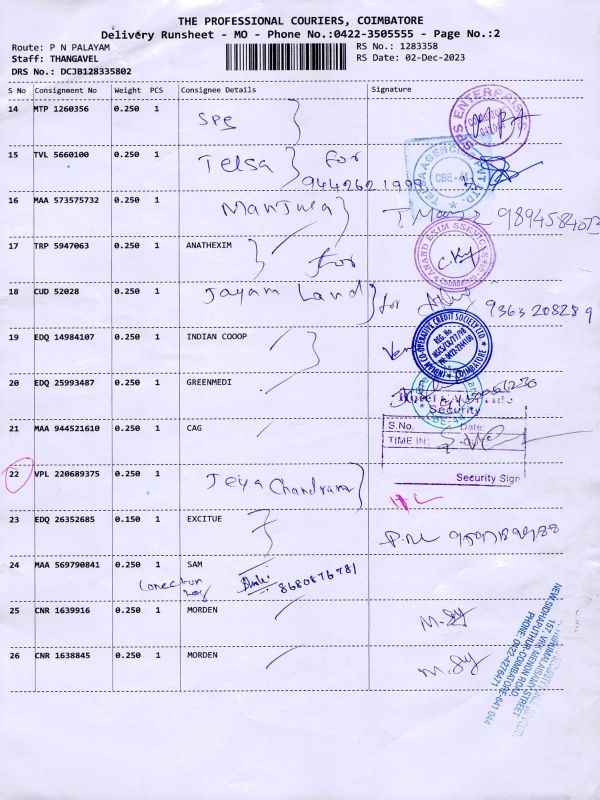 THE PROFESSIONAL COURIERS, COIMBATORE
Delivery Runsheet - MO - Phone No.:0422-3505555 - Page No.:2
Route: P N PALAYAM RS No.: 1283358
Staff: THANGAVEL RS Date: 02-Dec-2023
DRS No.: DCJB128335802
S No Consignment No Weight PCS Consignee Details Signature
14 MTP 1260356 0.250 1 SPS
SPS ENTERPRISES
15 TVL 5660100 0.250 1 Telsa for
9442621998
CBE-41
16 MAA 573575732 0.250 1 Manjula 9894584073
17 TRP 5947063 0.250 1 ANATHEXIM for
ANAND EXIM SERVICES
18 CUD 52028 0.250 1 Jayam Land for 9363208289
19 EDQ 14984107 0.250 1 INDIAN COOOP
INDIAN CO-OPERATIVE CREDIT SOCIETY LTD.
COIMBATORE
20 EDQ 25993487 0.250 1 GREENMEDI
Security
21 MAA 944521610 0.250 1 CAG
S.No. Date:
TIME IN:
Security Sign
22 VPL 220689375 0.250 1 Jeya Chandran
23 EDQ 26352685 0.150 1 EXCITUE
24 MAA 569790841 0.250 1 SAM
8680876781
25 CNR 1639916 0.250 1 MORDEN
26 CNR 1638845 0.250 1 MORDEN
157, VRK MENON ROAD,
NEW SIDHAPUTHUR-COIMBATORE-641 044
PHONE: 0422-4276471